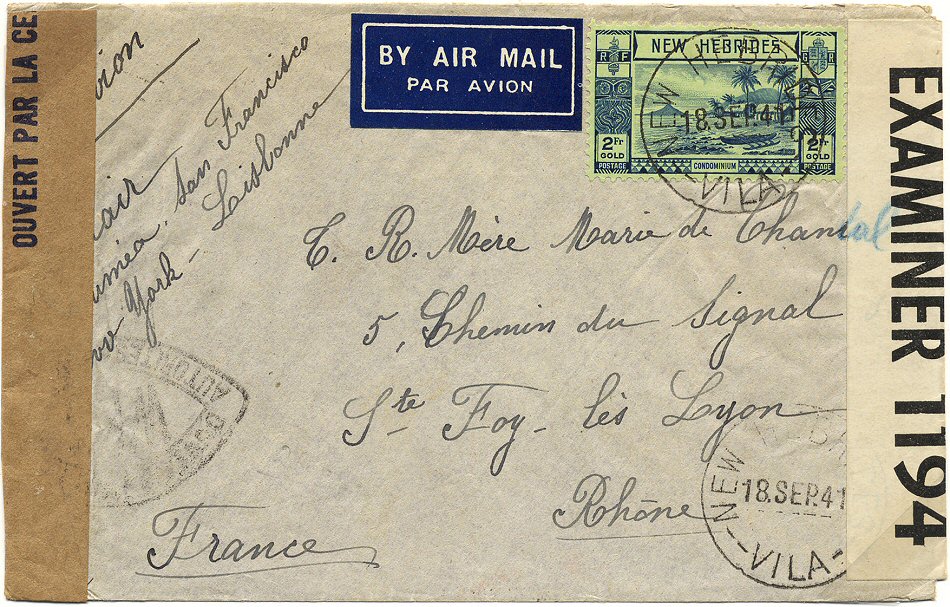 OUVERT PAR LA CE
BY AIR MAIL
PAR AVION
NEW HEBRIDES
RF
GR
2Fr
GOLD
POSTAGE
CONDOMINIUM
2Fr
GOLD
POSTAGE
NEW HEBRIDES
18.SEP.41
VILA
vion
air
uméa. San Francisco
York - Lisbonne
T. R. Mère Marie de Chantal
5, Chemin du Signal
Ste Foy-lès Lyon
Rhône
France
AUTORITES
NEW
18.SEP.41
VILA
EXAMINER 1194